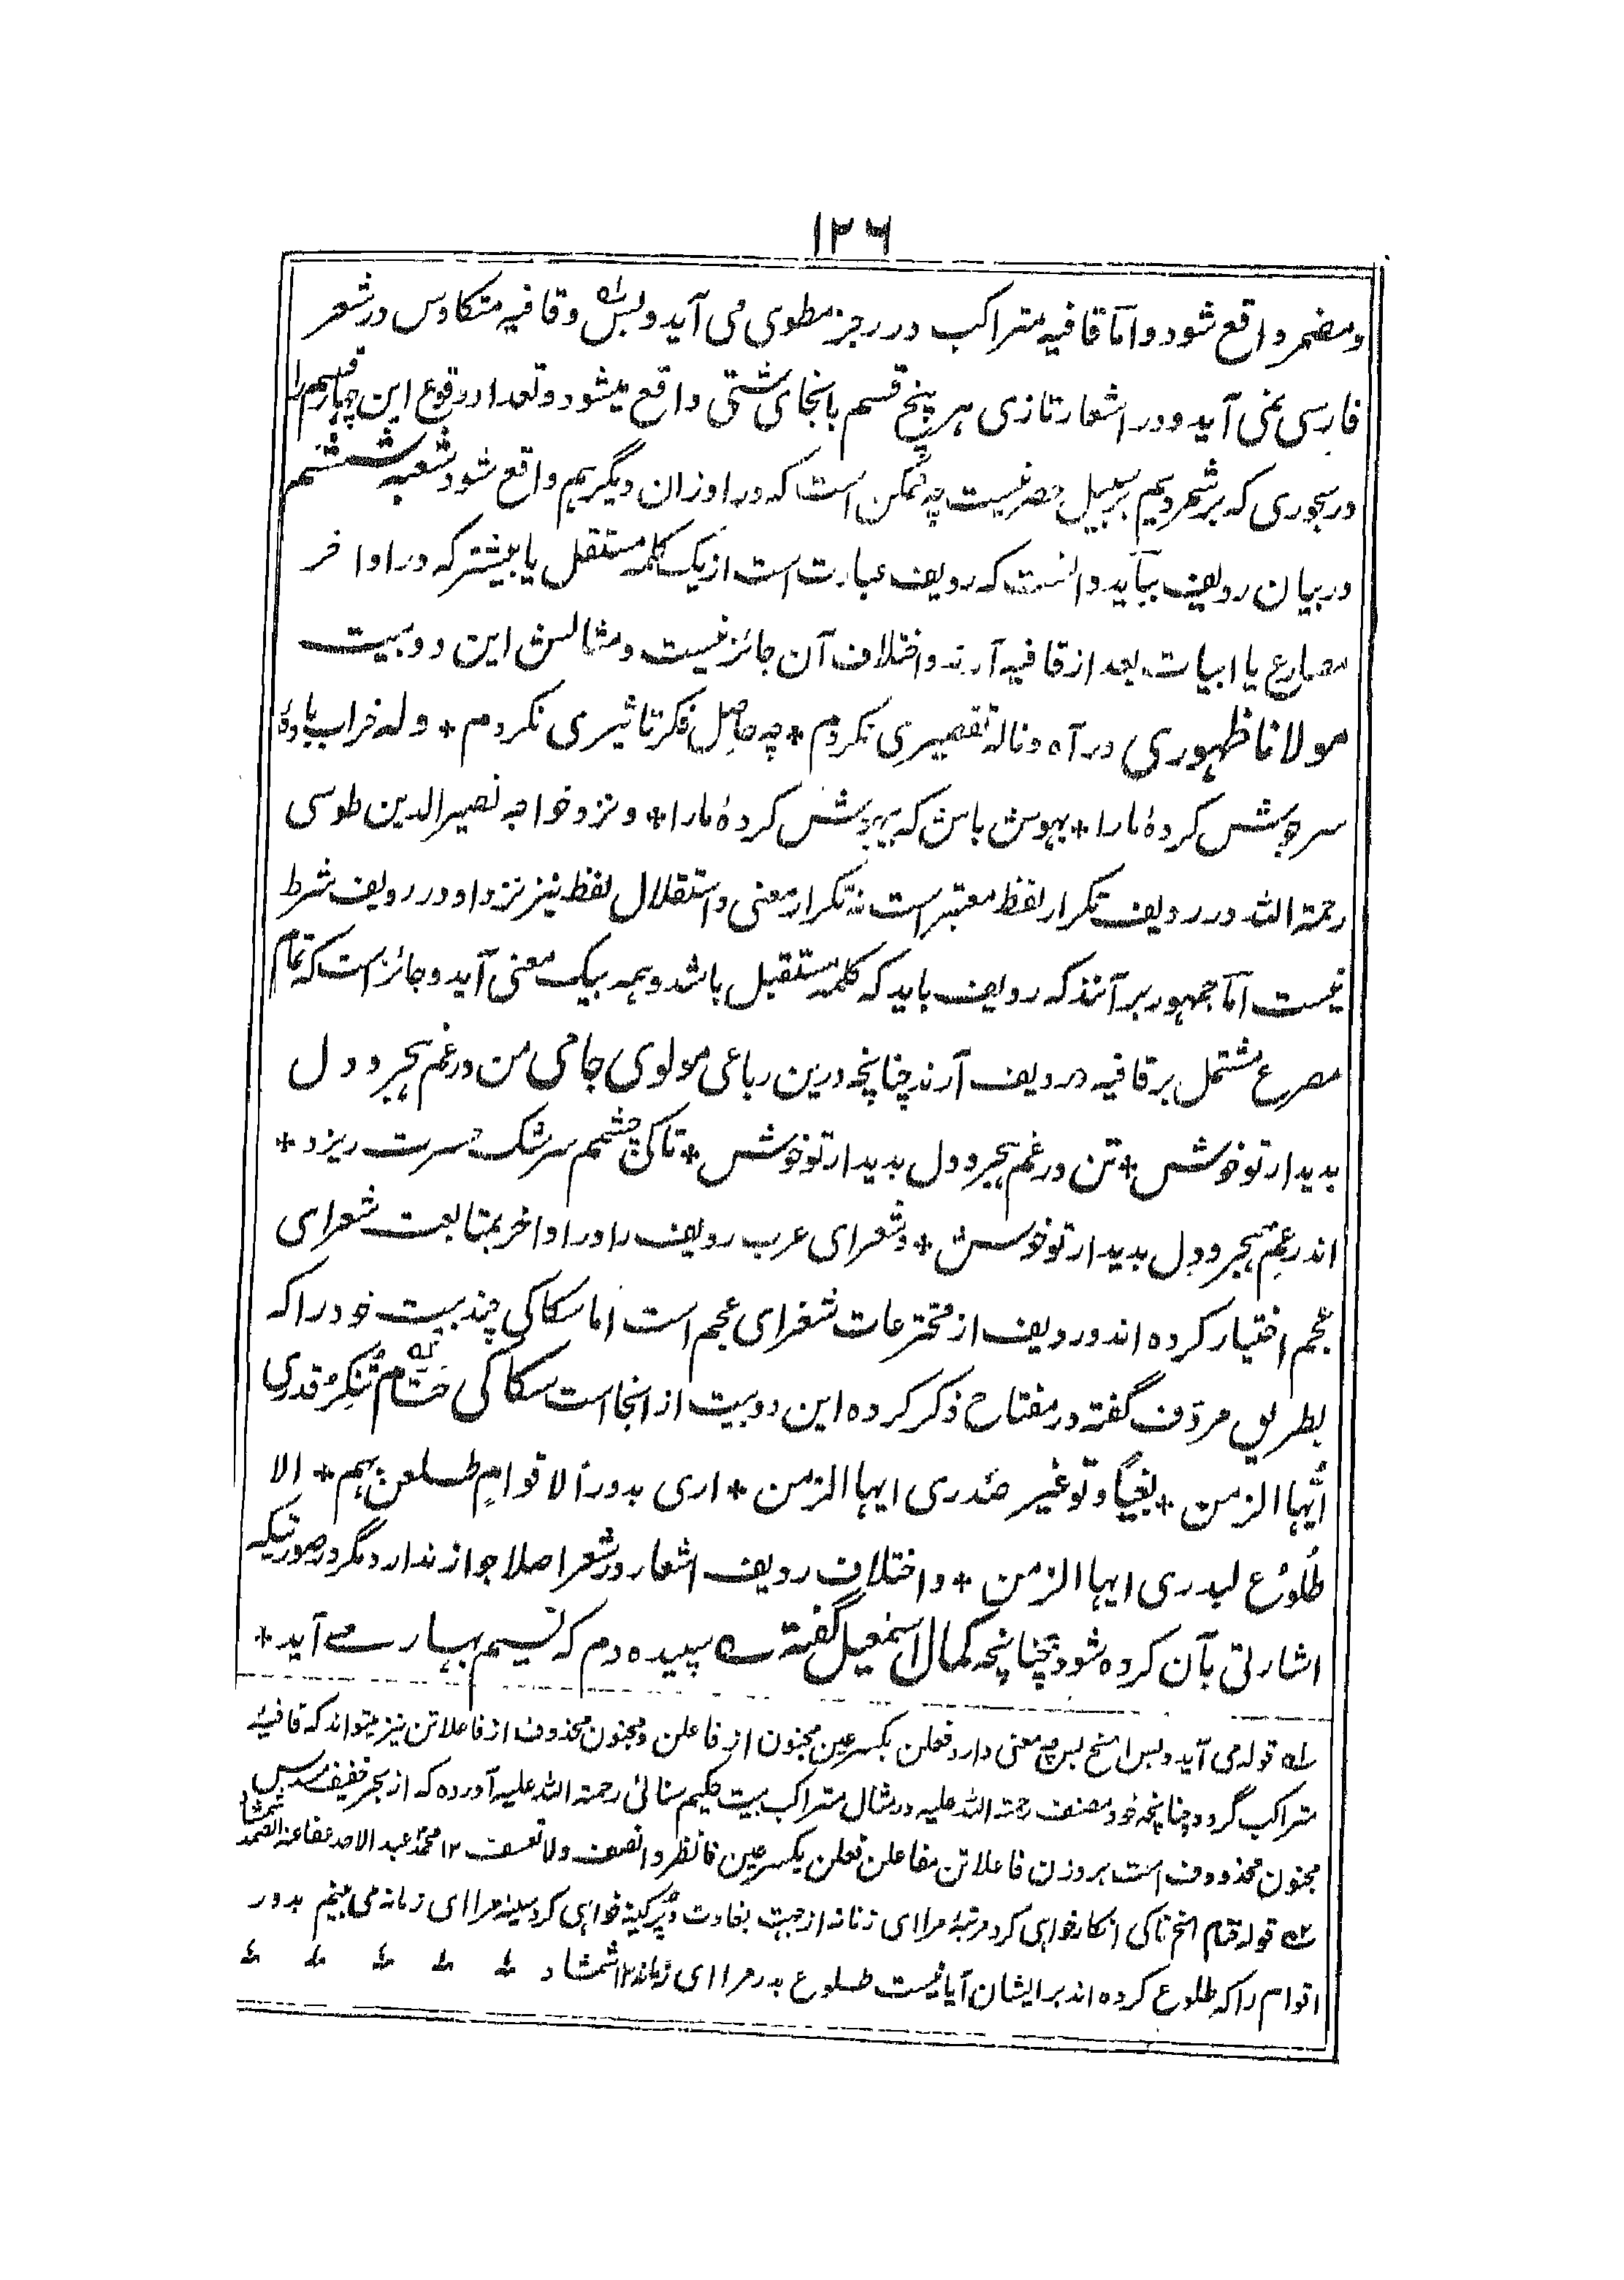 ۱۲۶
ومضمر واقع شود و اما قافیه متراکب در رجز مطوی می آید و بس۱ه و قافیه متکاوس در شعر
فارسی نمی آید و در اشعار تازی هر پنج قسم بانحای شتی واقع میشود و تعداد وقوع این چهار قسم را
در بحوری که بر شمردیم بر سبیل حصر نیست چه ممکن است که در اوزان دیگر هم واقع شود شعبه ششم
در بیان ردیف بباید دانست که ردیف عبارت است از یک کلمه مستقل یا بیشتر که در اواخر
مصارع یا ابیات بعد از قافیه آرند و اختلاف آن جائز نیست و مثالش این دو بیت
مولانا ظهوری در آه و ناله تقصیری نکردم * چه حاصل فکر تاثیری نکردم * وله خراب بادۀ
سرجوش کردۀ مارا * بهوش باش که بیهوش کردۀ مارا * و نزد خواجه نصیر الدین طوسی
رحمة الله در ردیف تکرار لفظ معتبر است نه تکرار معنی و استقلال لفظ نیز نزد او در ردیف شرط
نیست اما جمهور بر آنند که ردیف باید که کلمه مستقل باشد و همه بیک معنی آید و جائز است که تمام
مصرع مشتمل بر قافیه و ردیف آرند چنانچه درین رباعی مولوی جامی من در غم هجر و دل
بدیدار تو خوش * تن در غم هجر و دل بدیدار تو خوش * تاکی چشمم سرشک حسرت ریزد *
اندر غم هجر و دل بدیدار تو خوش * و شعرای عرب ردیف را در اواخر بمتابعت شعرای
عجم اختیار کرده اند و ردیف از مخترعات شعرای عجم است اما سکاکی چند بیت خود را که
بطریق مردف گفته در مفتاح ذکر کرده این دو بیت از انجا است سکاکی حتّام۲ه تُنکِرُ قدری
ایُّها الزمن * بغیًا و توغیر صدری ایها الزمن * اری بدور الاقوام طلعن بهم * الا
طُلُوعُ لبدری ایها الزمن * و اختلاف ردیف اشعار در شعر اصلا جواز ندارد مگر در صورتیکه
اشارتی بآن کرده شود چنانچه کمال اسمعیل گفته سه سپیده دم که نسیم بهار مے آید *
۱ه قوله می آید و بس الخ بس چه معنی دارد فعلن بکسر عین مخبون از فاعلن و مخبون محذوف از فاعلاتن نیز میتواند که قافیۀ
متراکب گردد چنانچه خود مصنف رحمة الله علیه در مثال متراکب بیت حکیم سنائی رحمة الله علیه آورده که از بحر خفیف مسدس
مخبون محذوف است بر وزن فاعلاتن مفاعلن فعلن بکسر عین فانظر و انصف ولا تعسف ۱۲ محمد عبد الاحد عفا عنه الصمد شمشاد
۲ه قوله حتام الخ تا کی انکار خواهی کرد مرتبۀ مرا ای زمانه از جهت بغاوت و پرکینه خواهی کرد سینه مرا ای زمانه می بینم بدور
اقوام را که طلوع کرده اند بر ایشان آیا نیست طلوع بدر مرا ای زمانه ۱۲ شمشاد